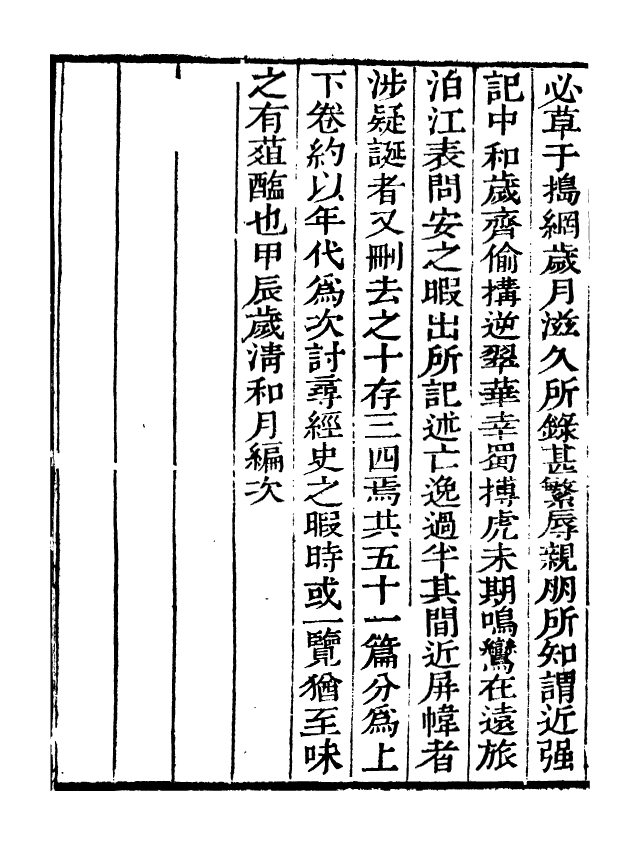 必草于搗網歲月滋久所錄甚繁辱親朋所知謂近强
記中和歲齊偷搆逆翠華幸蜀搏虎未期鳴鸞在遠旅
泊江表問安之暇出所記述亡逸過半其間近屏幃者
涉疑誕者又刪去之十存三四焉共五十一篇分爲上
下卷約以年代爲次討尋經史之暇時或一覽猶至味
之有菹醢也甲辰歲清和月編次